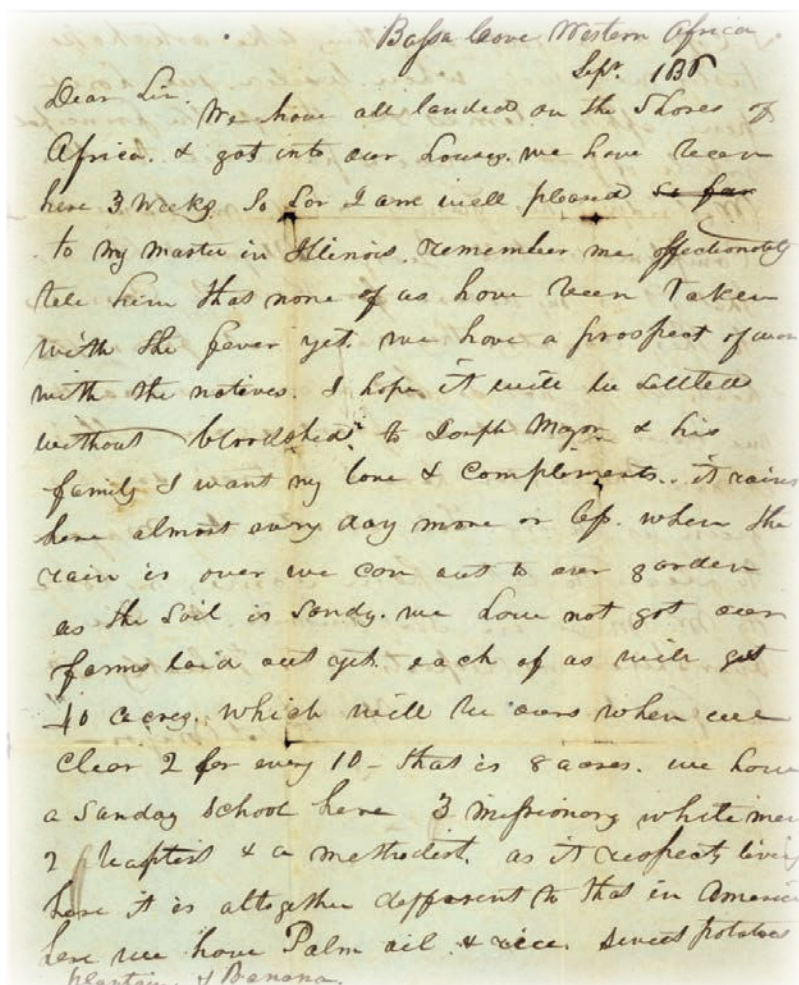 Bassa Cove Western Africa
Sept. 183
Dear Sir. We have all landed on the Shores of
Africa. & got into our houses. we have been
here 3 weeks. So for I am well pleased so far
to my master in Illinois. remember me affectionately
tell him that none of us have been Taken
with the fever yet. we have a prospect of war
with the natives. I hope it will be settled
without bloodshed. to Joseph Major & his
family I want my love & compliments.. it rains
here almost every day more or less. when the
rain is over we can out to our garden
as the soil is Sandy. we have not got our
farms laid out yet. each of us will get
40 acres. which will be ours when we
clear 2 for every 10 - that is 8 acres. we have
a Sanday School here 3 missionary white men
2 Baptist & a methodist. as it respects living
here it is altogether different to that in America
here we have Palm oil. & rice. sweet potatoes
plantain & Banana.